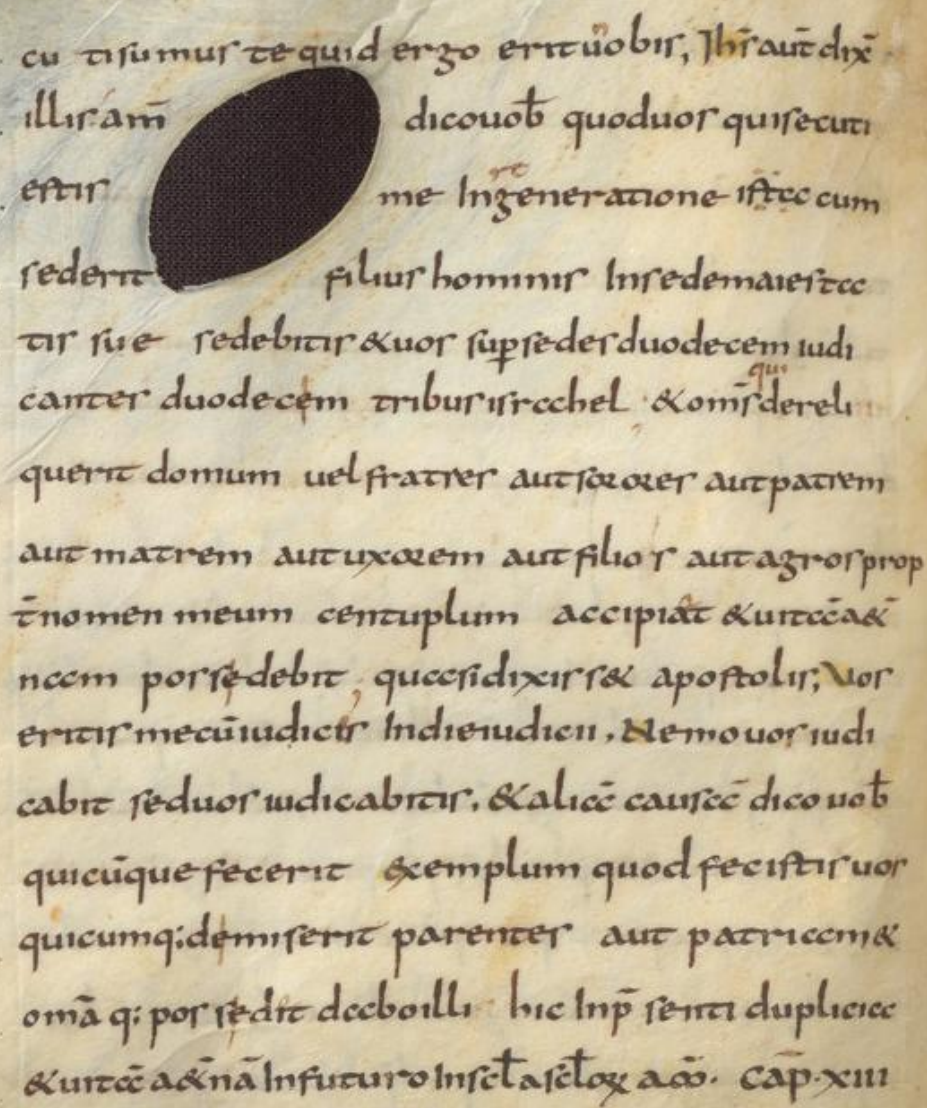 cu tisumus te quid ergo erit uobis, Ihs̄ aut̄ dix̄
illis am̄ dico uob̄ quod uos qui secuti
estis me In generatione ista cum
sederit filius hominis In sede maiesta
tis sue sedebitis & uos sup̱ sedes duodecem iudi
qui
cantes duodecem tribus israhel & om̄s dereli
querit domum uel fratres aut sorores aut patrem
aut matrem aut uxorem aut filios aut agros prop
t̄ nomen meum centuplum accipiat & uitā a&̄
nam possedebit, quasi dixiss& apostolis; Vos
eritis mecū iudicis In die iudicii. Nemo uos iudi
cabit sed uos iudicabitis. & aliā causā dico uob̄
quicūque fecerit exemplum quod fecistis uos
quicumq; demiserit parentes aut patriam &
om̄a q; possedit dabo illi hic In p̄senti duplicia
& uitā a&̄nā In futuro In scl̄a scl̄oꝝ am̄. Cap̄. xiii